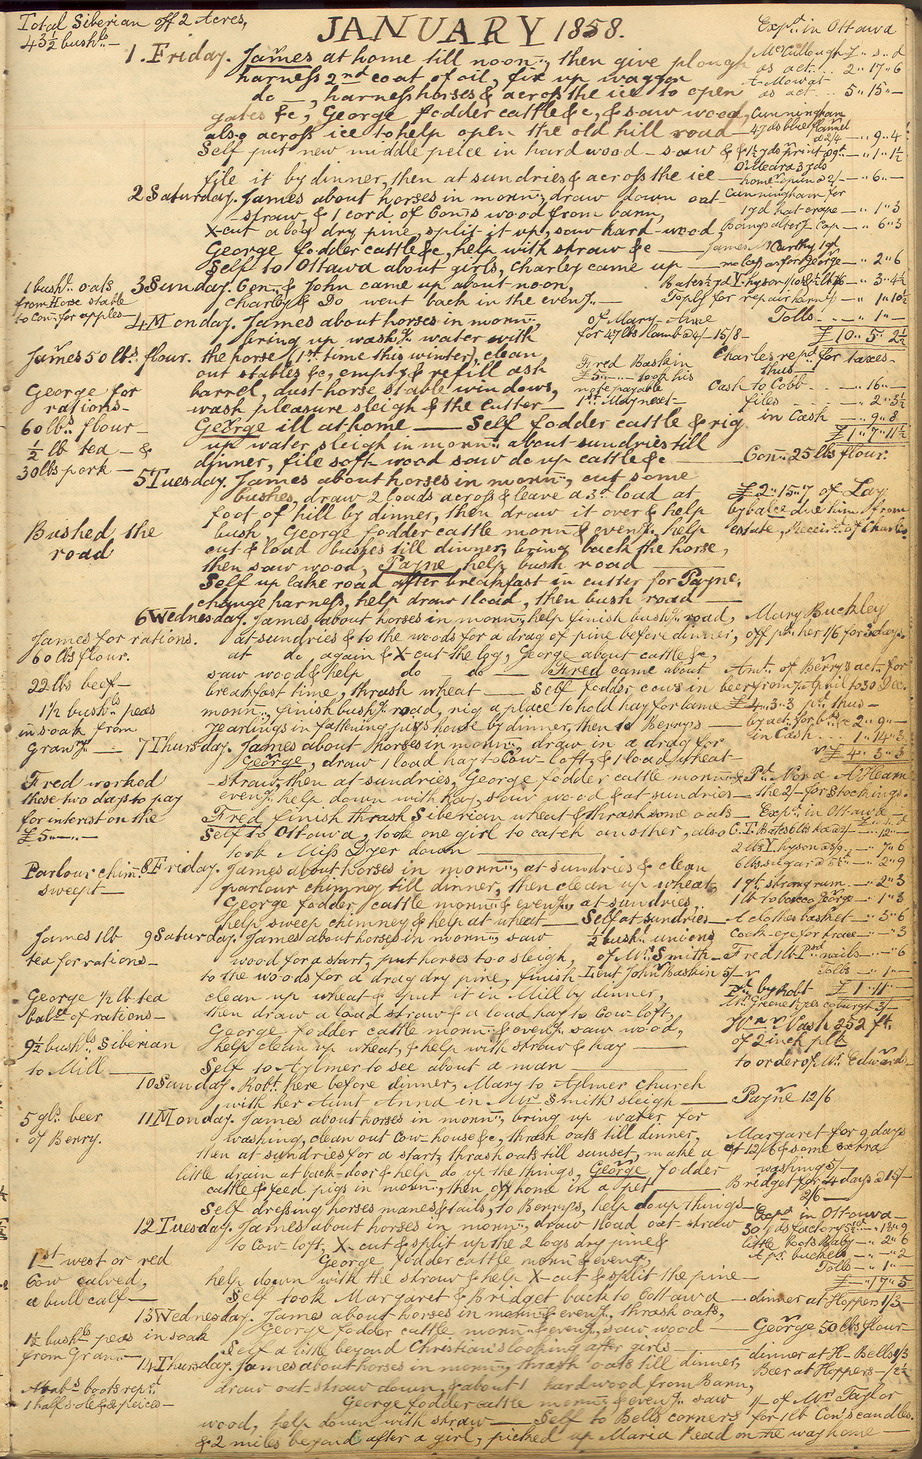 Total Siberian off 2 Acres,
43½ bushls —
JANUARY 1858.
1. Friday. James at home till noon, then give plough
harness 2nd coat of oil, fix up waggon
do —, harness horses & across the ice to open
gates &c, George fodder cattle &c, & saw wood,
also across ice to help open the old hill road —
Self put new middle peice in hard wood — saw &
file it by dinner, then at sundries & across the ice —
2 Saturday. James about horses in mornng, draw down oat
straw, & 1 cord, of Con's wood from barn,
X-cut a log dry pine, split it up, saw hard wood,
George fodder cattle &c, help with straw &c —
Self to Ottawa about girls, Charley came up —
3 Sunday. Con. & John came up about noon,
Charley & Do went back in the eveng. —
4 Monday. James about horses in mornng,
bring up washg. water with
the horse (1st time this winter), clean,
out stables &c, empty & refill ash
barrel, dust horse stable windows,
wash pleasure sleigh & the cutter —
George ill at home — Self fodder cattle & rig
up water sleigh in mornng. about sundries till
dinner, file soft wood saw do up cattle &c —
5 Tuesday. James about horses in mornng, cut some
bushes, draw 2 loads across & leave a 3d load at
foot of hill by dinner, then draw it over & help
bush, George fodder cattle mornng & eveng, help
cut & load bushes till dinner, bring back the horse,
then saw wood, Payne help bush road —
Self up lake road after breakfast in cutter for Payne,
change harness, help draw 1 load, then bush road —
6 Wednesday. James about horses in mornng, help finish bushg. road,
at sundries & to the woods for a drag of pine before dinner,
at do again & X-cut the log, George about cattle &c,
saw wood & help do do — Fred came about
breakfast time, thrash wheat — Self fodder cows in
mornng, finish bushg. road, rig a place to hold hay for lame
yearlings in fattening pigs house by dinner, then to Berrys —
7 Thursday. James about horses in mornng, draw in a drag for
George, draw 1 load hay to Cow-loft, & 1 load wheat-
straw, then at sundries, George fodder cattle mornng &
eveng. help down with hay, saw wood & at sundries —
Fred finish thrash Siberian wheat & thrash some oats —
Self to Ottawa, took one girl to catch another, also
took Miss Dyer down —
8 Friday. James about horses in mornng, at sundries & clean
parlour chimney till dinner, then clean up wheat,
George fodder cattle mornng & eveng, at sundries,
help sweep chimney & help at wheat — Self at sundries —
9 Saturday. James about horses in mornng, saw
wood for a start, put horses to a sleigh,
to the woods for a drag dry pine, finish
clean up wheat & put it in Mill by dinner,
then draw a load straw & a load hay to Cow loft,
George fodder cattle mornng & eveng. saw wood,
help clean up wheat, & help with straw & hay —
Self to Aylmer to see about a man —
10 Sunday. Robt. here before dinner, Mary to Aylmer church
with her Aunt Anna in Mr Smiths sleigh —
11 Monday. James about horses in mornng, bring up water for
washing, clean out Cow-house &c, thrash oats till dinner,
then at sundries for a start, thrash oats till sunset, make a
little drain at back-door & help do up the things, George fodder
cattle & feed pigs in mornng, then off home in a pet —
Self dressing horses manes & tails, to Berrys, help do up things —
12 Tuesday. James about horses in mornng, draw 1 load oat straw
to Cow loft, X-cut & split up the 2 logs dry pine &
George fodder cattle mornng & eveng,
help down with the straw & help X-cut & split the pine —
Self took Margaret & Bridget back to Ottawa —
13 Wednesday. James about horses in mornng & eveng, thrash oats,
George fodder cattle mornng & eveng, saw wood —
Self a little beyond Christian's looking after girls —
14 Thursday. James about horses in mornng, thrash oats till dinner,
draw oat straw down, & about 1 hardwood from Barn,
George fodder cattle mornng & eveng. saw
wood, help down with straw — Self to Bells corners
& 2 miles beyond after a girl, picked up Maria Read on the way home —
1 bushl. oats
from Horse stable
to Con. for apples —
James 50 lbs. flour.
George for
rations —
60 lbs flour —
½ lb tea — &
30 lbs pork —
Bushed, the
road
James for rations.
60 lbs flour.
22 lbs beef —
1½ bushls peas
in soak from
Granry. —
Fred worked
these two days to pay
for interest on the
£5 —.. —
Parlour chim.
swept —
James 1 lb
tea for rations —
George ½ lb tea
balce of rations —
9½ bushls Siberian
to Mill —
5 gls. beer
of Berry.
1st west or red
Cow calved,
a bull calf —
1½ bushls peas in soak
from Granry —
boots repd.
1 half sole & peices —
Expd. in Ottawa
McCullough £ .. s .. d
as act. .. 2 .. 17 .. 6
to Mowat
as act .. 5 .. 15 .. —
Cunningham
47 ds blue flannel
a 2/4 — .. 9 .. 4
1½ yds print 9d — .. 1 .. 1½
O'Meara 3 yds
homespun a 2/ — .. 6 .. —
Cunningham for
1 yd hat crape — .. 1 .. 3
Boings alterg Cap — .. 6 .. 3
James McCarthy 1 gl
molass for George — .. 2 .. 6
Toply for repair harns — .. 1 .. 10½
Tolls .. — .. 1 .. —
£ 10 .. 5 .. 2½
of Mary Anne
for 47 lbs lamb a 4/ — 15/8 —
Fred Baskin
£5 — took his
note payable
1st May next —
Charles repd. for taxes —
thus —
Cash to Cobb .. — .. 16 .. —
files — .. 2 .. 3½
in Cash — .. 9 .. 8
£ 1 .. 7 .. 11½
Con. 25 lbs flour.
£ 2 .. 15 .. 7 of Lay
by balce due him from
estate, Receit. of Charles
Mary Buckley
off pd. her 1/6 for 3 days.
Amt. of Berrys act. for
beer from 7 April to 30 Dec.
£ 4 .. 3 .. 3 pd. thus —
by act. for — 2 .. 9 .. —
in Cash .. 1 .. 14 .. 3
£ 4 .. 3 .. 3
Pd. Nora A'Hearn
the 2/ for Stockings.
Expd. in Ottawa —
C. T. Bates 6 lbs tea 2/ — .. 12 .. —
2 lbs Y. hyson 3/9 .. — .. 7 .. 6
6 lbs sugar a 5½d — .. 2 .. 9
1 qt strong rum .. — .. 2 .. 3
1 lb tobacco George — .. 1 .. 3
A clothes basket — .. 3 .. 6
Cock-eye for trace — .. — .. 3
Fred 1 lb Psd nails — .. — .. 6
Tolls .. — .. 1 .. —
£ 1 .. 11 .. —
½ bushl. unions
of Mr. Smith —
Lent John Baskin 5/
Pd. by Robt
Mr Greene pr coburgh 5/ —
Wm Nash 252 ft.
of 2 inch plk
to order of Mr. Edwards —
Payne 12/6
Margaret for 9 days
at 12/6 & some extra
washings 5/ —
Bridget for 4 days a 15/ —
2/6 —
Expd. in Ottawa —
30 yds factory 5½d — .. 13 .. 9
little boots Baby — .. 2 .. 6
A pr. buckets .. — .. — .. 2
Tolls — .. 1 .. —
£ — .. 17 .. 5
dinner at Hoppers 1/3
George 50 lbs flour —
dinner at H. Bells 1/3
Beer at Hoppers — /2½
of Mr Taylor
for 1 lb Con's candles